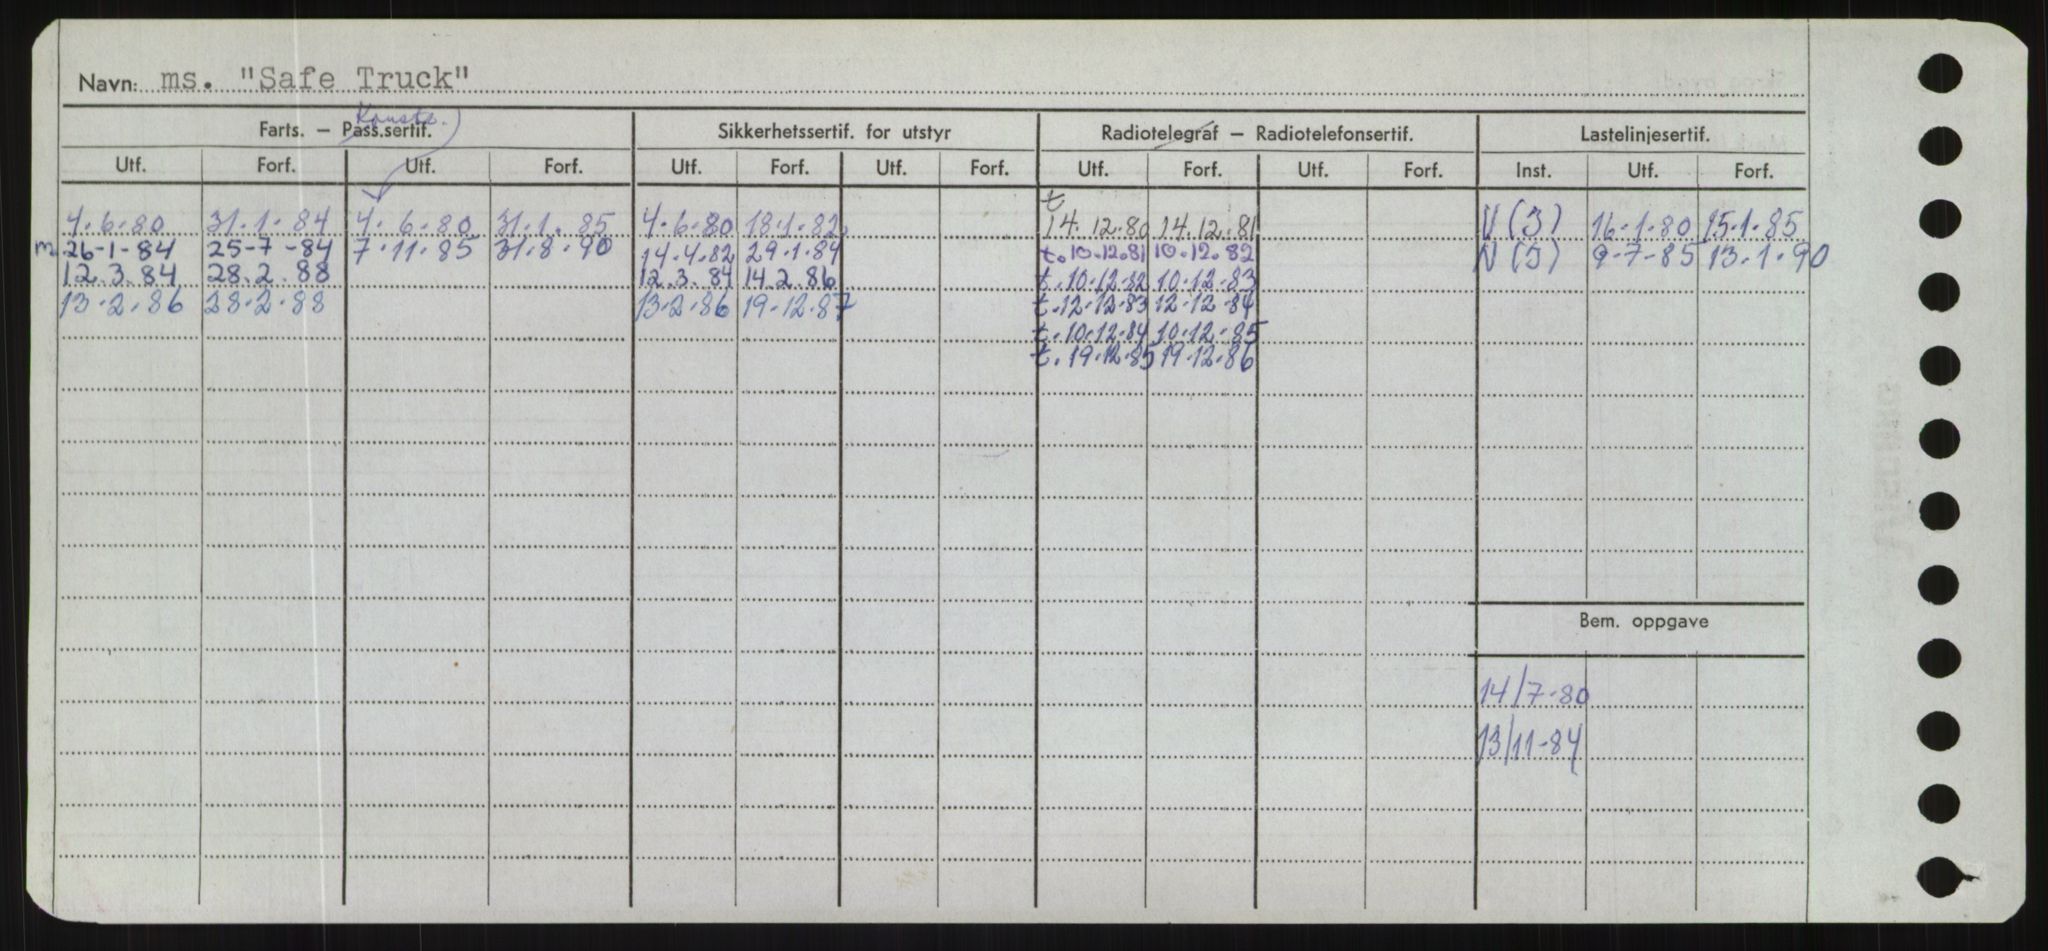 Navn: ms. "Safe Truck"
Konstr.
Farts. – Pass.sertif. Sikkerhetssertif. for utstyr Radiotelegraf – Radiotelefonsertif. Lastelinjesertif.
Utf. Forf. Utf. Forf. Utf. Forf. Utf. Forf. Utf. Forf. Utf. Forf. Inst. Utf. Forf.
t
4.6.80 31.1.84 4.6.80 31.1.85 4.6.80 18.1.82 14.12.80 14.12.81 V(3) 16.1.80 15.1.85
m 26-1-84 25-7-84 7.11.85 31.8.90 14.4.82 29.1.84 t.10.12.81 10.12.82 N(5) 9-7-85 13.1.90
12.3.84 28.2.88 12.3.84 14.2.86 t.10.12.82 10.12.83
13.2.86 28.2.88 13.2.86 19.12.87 t.12.12.83 12.12.84
t.10.12.84 10.12.85
t.19.12.85 19.12.86
Bem. oppgave
14/7-80
13/11-84